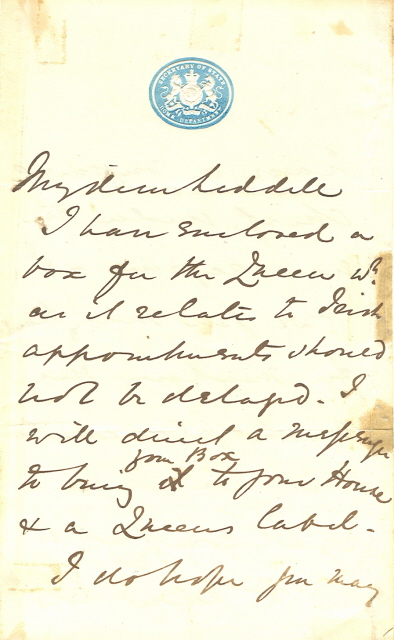 SECRETARY OF STATE
HOME DEPARTMENT
My dear Liddell
I have enclosed a
box for the Queen wh
as it relates to Irish
appointments should
not be delayed. I
will direct a messenger
your Box
to bring it to your House
& a Queens label.
I do hope you may